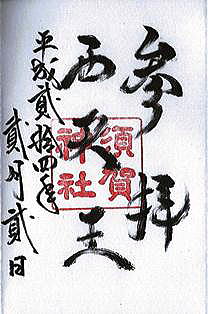 參拝
西天王
須賀
神社
平成貳拾四年
貳月貳日